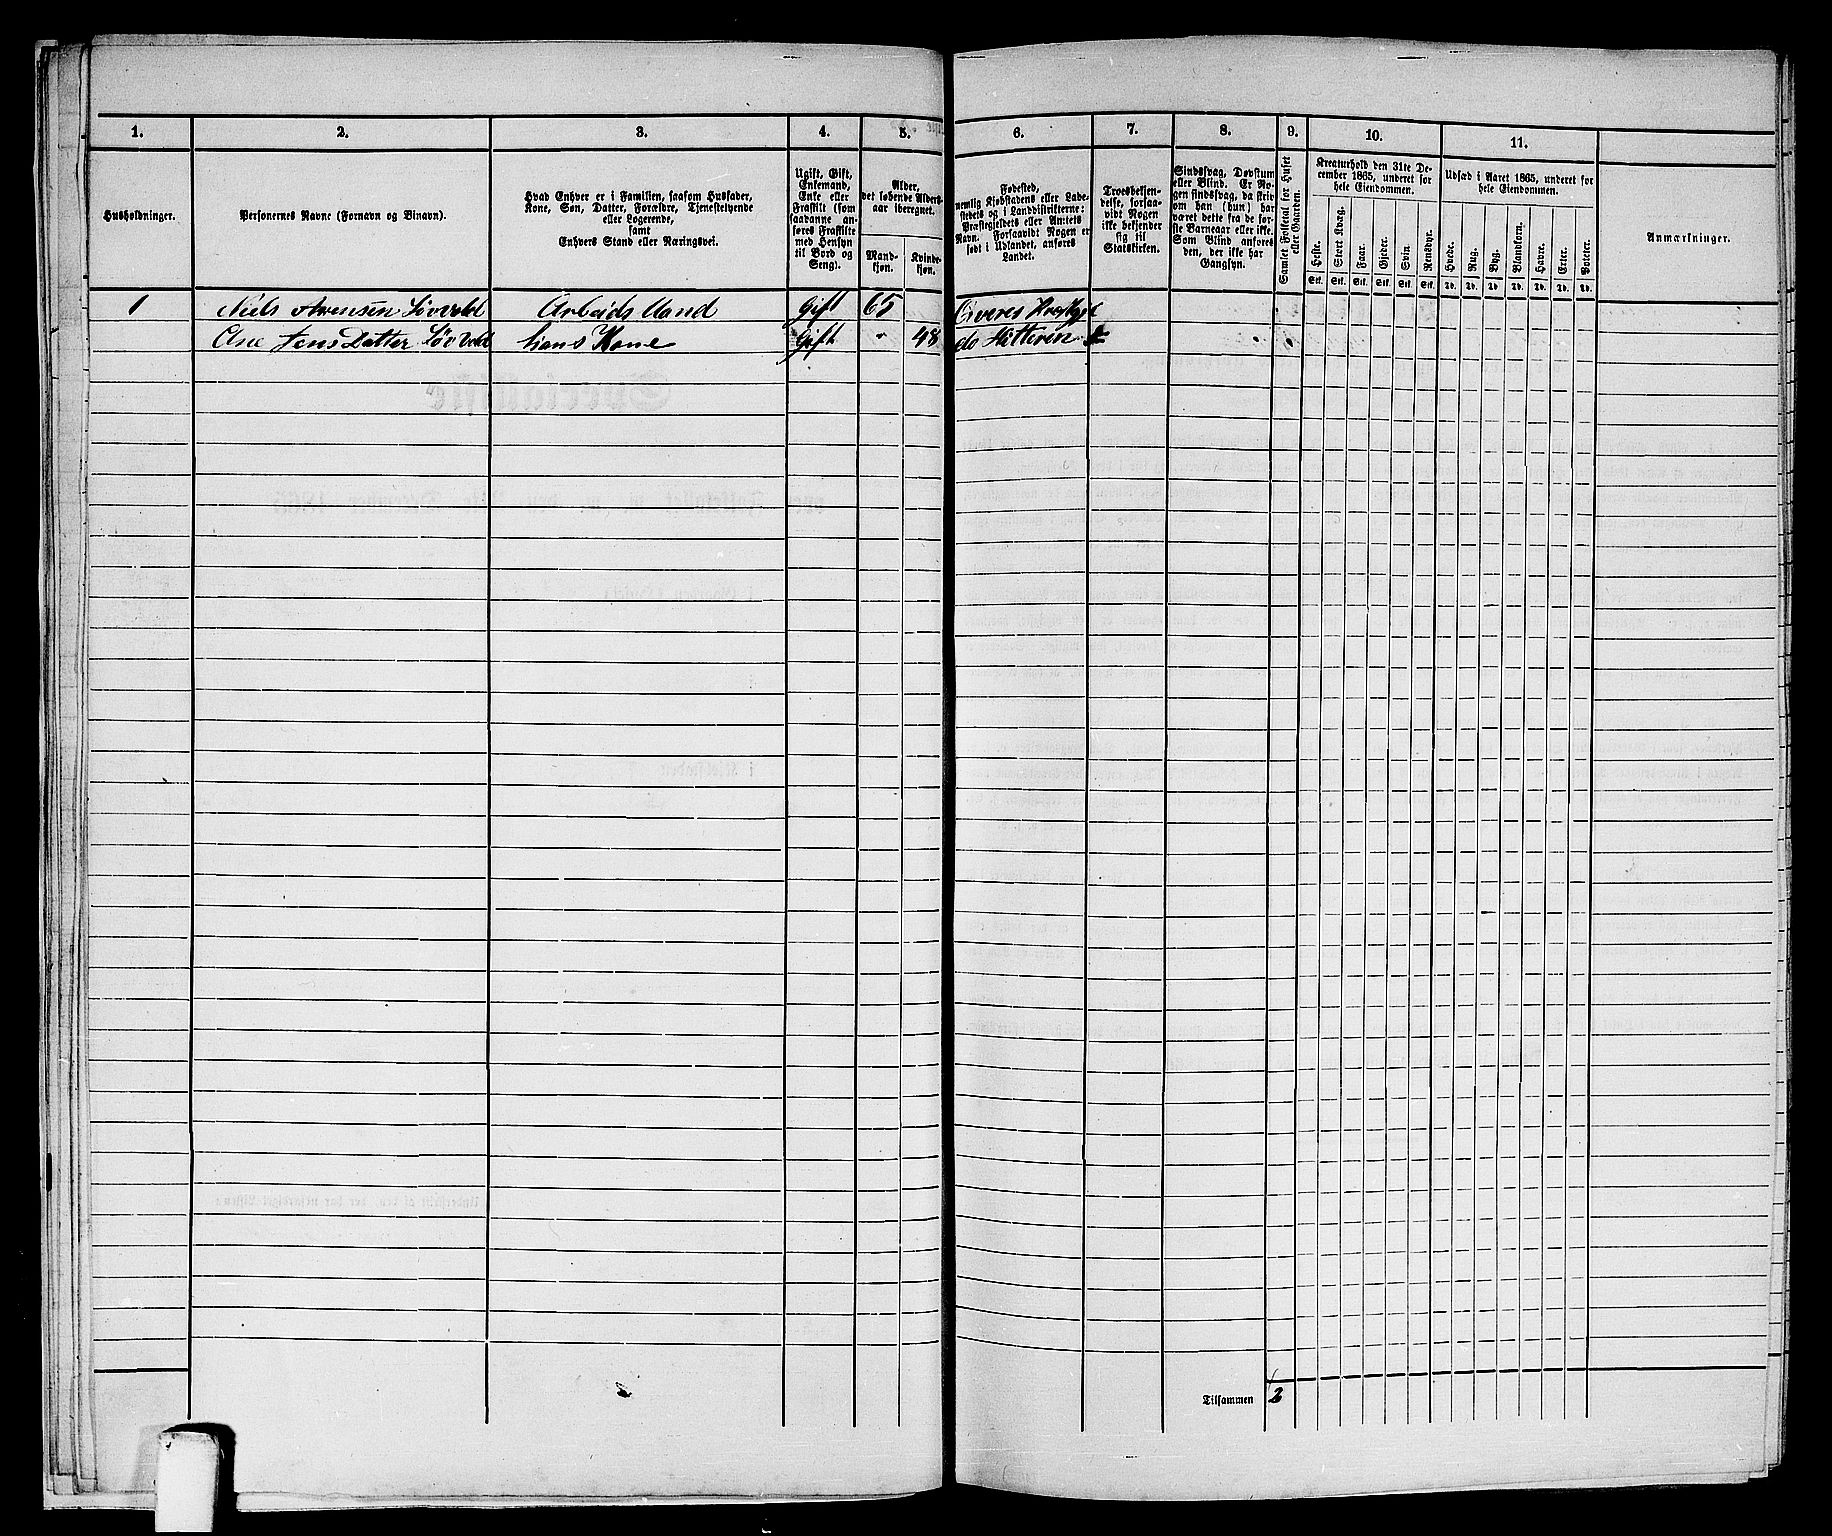 1. 2. 3. 4. 5. 6. 7. 8. 9. 10. 11.
Husholdninger.
Personernes Navne (Fornavn og Binavn).
Hvad Enhver er i Familien, saasom Husfader,
Kone, Søn, Datter, Forældre, Tjenestetyende
eller Logerende,
samt
Enhvers Stand eller Næringsvei.
Ugift, Gift,
Enkemand,
Enke eller
Fraskilt (som
saadanne an-
føres Fraskilte
med Hensyn
til Bord og
Seng).
Alder,
det løbende Alders-
aar iberegnet.
Mand-
kjøn.
Kvinde-
kjøn.
Fødested,
nemlig Kjøbstadens eller Lade-
stedets og i Landdistrikterne:
Præstegjeldets eller Amtets
Navn. Forsaavidt Nogen er
født i Udlandet, anføres
Landet.
Troesbekjen-
delse, forsaa-
vidt Nogen
ikke bekjender
sig til
Statskirken.
Sindssvag, Døvstum
eller Blind. Er No-
gen sindssvag, da skriv
om han (hun) har
været dette fra de før-
ste Barneaar eller ikke.
Som Blind anføres
den, der ikke har
Gangsyn.
Samlet Folketal for Huset
eller Gaarden.
Kreaturhold den 31te De-
cember 1865, underet for
hele Eiendommen.
Heste. Stort Kvæg. Faar. Gjeder. Svin. Rensdyr.
Stk. Stk. Stk. Stk. Stk. Stk.
Udsæd i Aaret 1865, underet for
hele Eiendommen.
Hvede. Rug. Byg. Blandkorn. Havre. Erter. Poteter.
Td. Td. Td. Td. Td. Td. Td.
Anmærkninger.
1 Niels Arensen Løvvold Arbeids Mand Gift 65
Ane Jens Datter Løvvold hans Kone Gift - 48 do Hitteren
Tilsammen 2